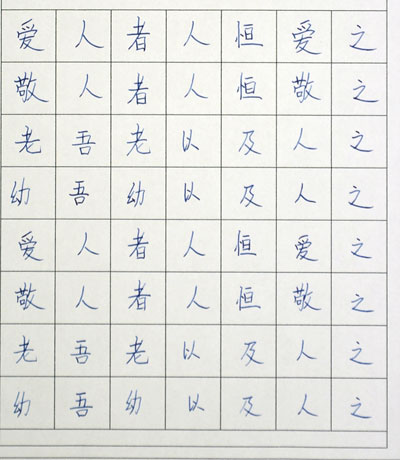 爱人者人恒爱之
敬人者人恒敬之
老吾老以及人之
幼吾幼以及人之
爱人者人恒爱之
敬人者人恒敬之
老吾老以及人之
幼吾幼以及人之